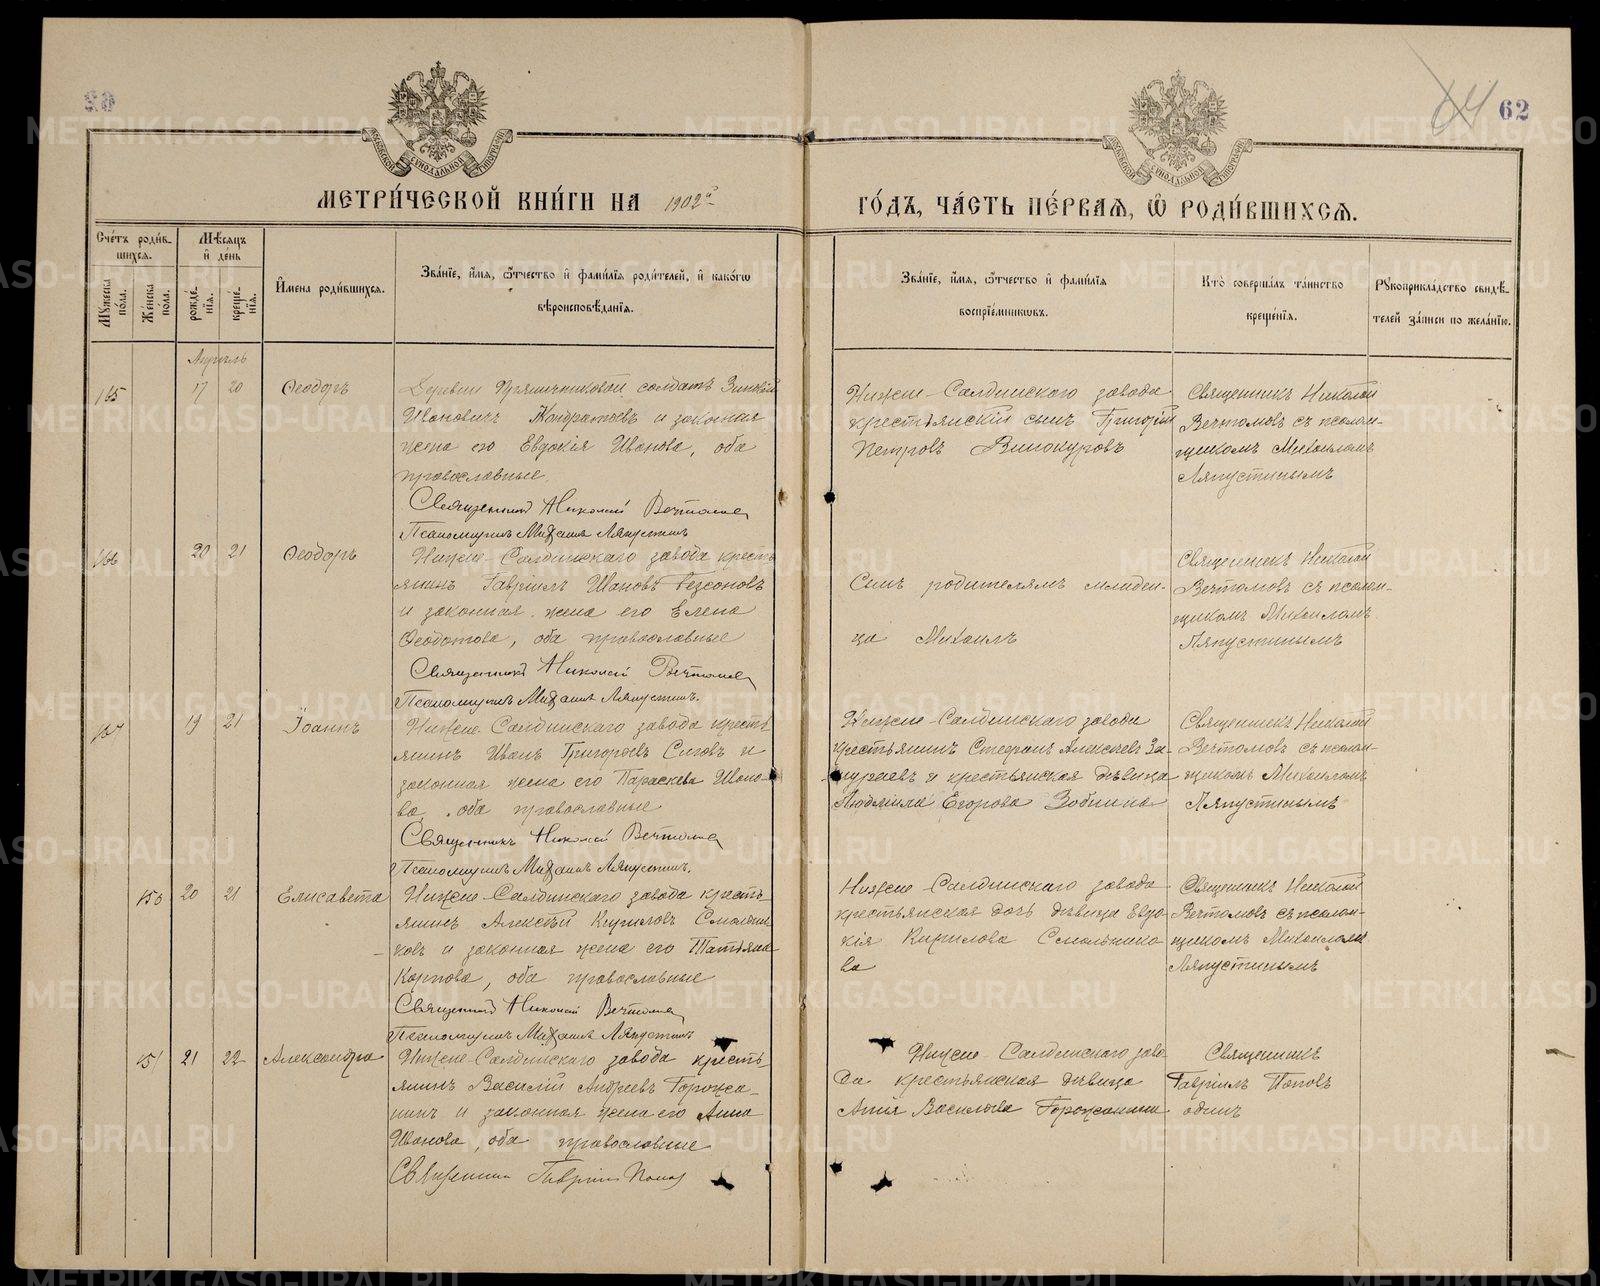 62
МЕТРИ́ЧЕСКОЙ КНИ́ГИ НА 1902й
ГО́ДЪ, ЧА́СТЬ ПЕ́РВАѦ, Ѡ РОДИ́ВШИХСѦ.
Сче́тъ роди́в-
шихсѧ.
Мѣ́сѧцъ
и҆ де́нь
Мꙋ́жеска по́ла.
Же́нска по́ла.
рожде́-
нїѧ.
креще́-
нїѧ.
И҆мена роди́вшихсѧ.
Зва́нїе, и҆́мѧ, ѻ҆́тчество и҆ фами́лїѧ роди́телей, и҆ како́гѡ
вѣроисповѣ́данїѧ.
Зва́нїе, и҆́мѧ, ѻ҆́тчество и҆ фами́лїѧ
воспрїе́мникѡвъ.
Кто̀ соверша́лъ та́инство
креще́нїѧ.
Рꙋкоприкла́дство свидѣ́-
телей за́писи по жела́нїю.
Апрель
165 17 20 Ѳеодоръ
Деревни Прянишниковой солдатъ Зиновій
Ивановичъ Кондратьевъ и законная
жена его Евдокія Иванова, оба
православные.
Священникъ Николай Вечтомов
Псаломщикъ Михаилъ Ляпустинъ
Нижне-Салдинскаго завода
крестьянскій сынъ Григорій
Петровъ Винокуровъ
Священникъ Николай
Вечтомовъ съ псалом-
щикомъ Михаиломъ
Ляпустинымъ
166 20 21 Ѳеодоръ
Нижне-Салдинскаго завода кресть
янинъ Гавріилъ Ивановъ
и законная жена его Елена
Ѳеодотова, оба православные
Священникъ Николай Вечтомов
Псаломщикъ Михаилъ Ляпустинъ.
Сынъ родителямъ младен-
ца Михаилъ
Священникъ Николай
Вечтомовъ съ псалом-
щикомъ Михаиломъ
Ляпустинымъ
167 19 21 Іоаннъ
Нижне-Салдинскаго завода кресть
янинъ Иванъ Григорьевъ Сиговъ и
законная жена его Параскева Ивано-
ва, оба православные
Священникъ Николай Вечтомов
Псаломщикъ Михаилъ Ляпустинъ.
Нижне-Салдинскаго завода
крестьянинъ Стефанъ Алексѣевъ За-
и крестьянская дѣвица
Людмила Егорова Зобнина
Священникъ Николай
Вечтомовъ съ псалом-
щикомъ Михаиломъ
Ляпустинымъ
150 20 21 Елисавета
Нижне-Салдинскаго завода кресть
янинъ Алексѣй Кириловъ Смольни
ковъ и законная жена его Татьяна
Карпова, оба православные
Священникъ Николай Вечтомов
Псаломщикъ Михаилъ Ляпустинъ
Нижне-Салдинскаго завода
крестьянская дочь дѣвица Евдо-
кія Кирилова Смольнико
ва
Священникъ Николай
Вечтомовъ съ псалом-
щикомъ Михаиломъ
Ляпустинымъ
151 21 22 Александра
Нижне-Салдинскаго завода кресть
янинъ Василій Андреевъ Горожа-
нинъ и законная жена его Анна
Иванова, оба православные
Священник Гавріил Попов
Нижне-Салдинскаго заво
да крестьянская дѣвица
Васильева Горожанина
Священникъ
Гавріилъ Поповъ
одинъ
METRIKI.GASO-URAL.RU